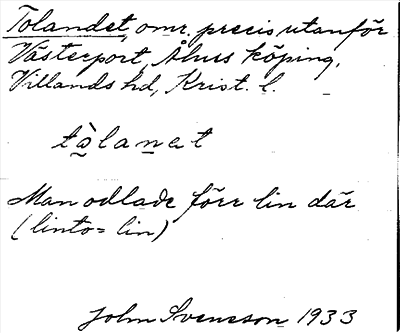 Tolandet, omr. precis utanför
Västerport, Åhus köping,
Villands hd, Krist. l.
tòlanet
Man odlade förr lin där
(linto = lin)
John Svensson 1933